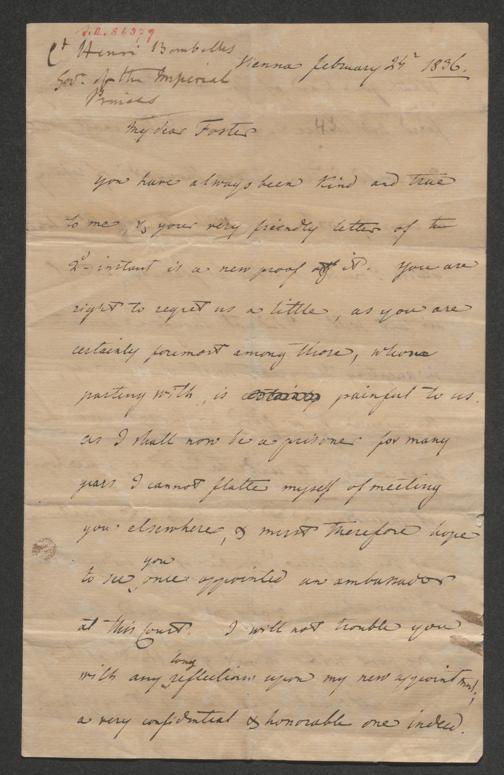 Ct Henri Bombelles
Govr. of the Imperial
Princes
Vienna february 24th 1836.
My dear Foster
43
you have always been kind and true
to me, & your very friendly letter of the
2d instant is a new proof of it. You are
right to regret us a little, as you are
certainly foremost among those, whom
parting with, is painful to us.
as I shall now be a prisoner for many
years I cannot flatter myself of meeting
you elsewhere, & must therefore hope
to see you once appointed an ambassador
at this Court. I will not trouble you
with any long reflections upon my new appointment;
a very confidential & honorable one indeed.